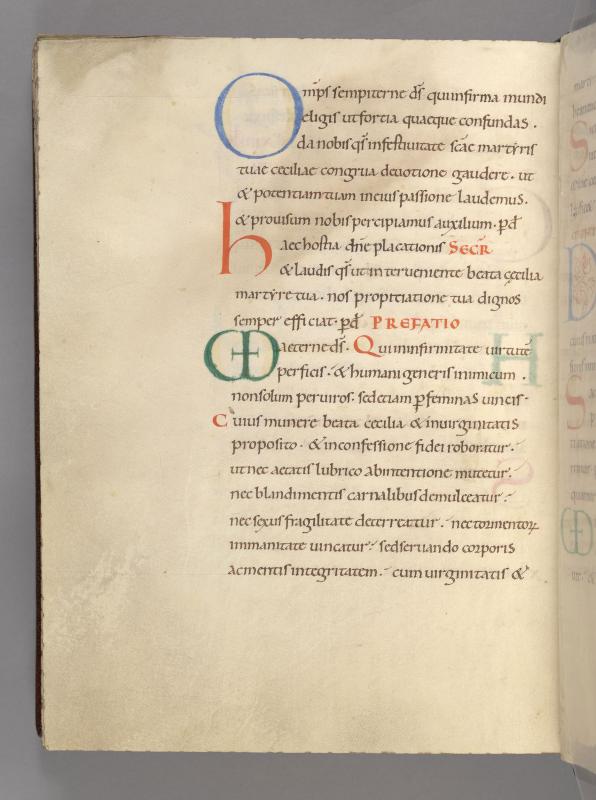 Om̅ps sempiterne d̅s quiinfirma mundi
eligis utfortia quaeque confundas .
da nobis qs̅ infestiuitate sc̅ae martyris
tuae ceciliae congrua deuotione gaudere . ut
& potentiam tuam ineius passione laudemus .
& prouisum nobis percipiamus auxilium . p̲d̅
haec hostia dn̅e placationis SECR̅
& laudis qs̅ ut interueniente beata cęcilia
martyre tua . nos propitiatione tua dignos
semper efficiat . p̲d̅ PREFATIO
VD aeterne d̅s . Qui ininfirmitate uirtute̅
perficis . & humani generis inimicum .
nonsolum per uiros . sedetiam p̲ feminas uincis .
Cuius munere beata cecilia & inuirginitatis
proposito . & inconfessione fidei roboratur .
ut nec aetatis lubrico abintentione mutetur .
nec blandimentis carnalibus demulceatur .
nec sexus fragilitate deterreatur . nec tormentoꝝ
immanitate uincatur . sed seruando corporis
acmentis integritatem . cum uirginitatis &